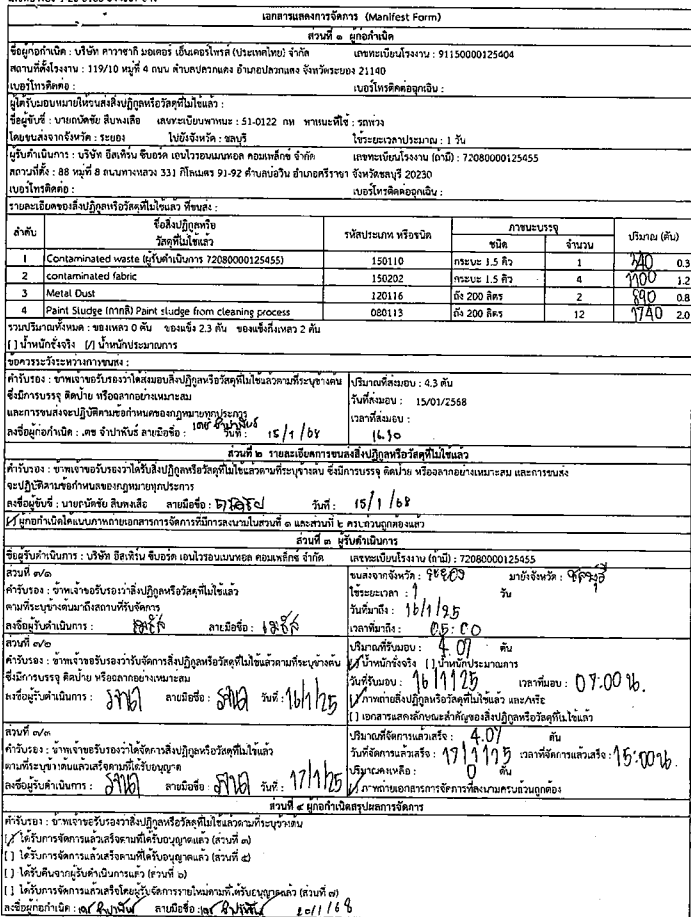 เอกสารแสดงการจัดการ (Manifest Form)
ส่วนที่ ๑ ผู้ก่อกำเนิด
ชื่อผู้ก่อกำเนิด : บริษัท คาวาซากิ มอเตอร์ เอ็นเตอร์ไพรส์ (ประเทศไทย) จำกัด เลขทะเบียนโรงงาน : 91150000125404
สถานที่ตั้งโรงงาน : 119/10 หมู่ที่ 4 ถนน ตำบลปลวกแดง อำเภอปลวกแดง จังหวัดระยอง 21140
เบอร์โทรติดต่อ : เบอร์โทรติดต่อฉุกเฉิน :
ผู้ได้รับมอบหมายให้ขนส่งสิ่งปฏิกูลหรือวัสดุที่ไม่ใช้แล้ว :
ชื่อผู้ขับขี่ : นายถนัดชัย สืบพงเสือ เลขทะเบียนพาหนะ : 51-0122 กท พาหนะที่ใช้ : รถพ่วง
โดยขนส่งจากจังหวัด : ระยอง ไปยังจังหวัด : ชลบุรี ใช้ระยะเวลาประมาณ : 1 วัน
ผู้รับดำเนินการ : บริษัท อีสเทิร์น ซีบอร์ด เอนไวรอนเมนทอล คอมเพล็กซ์ จำกัด เลขทะเบียนโรงงาน (ถ้ามี) : 72080000125455
สถานที่ตั้ง : 88 หมู่ที่ 8 ถนนทางหลวง 331 กิโลเมตร 91-92 ตำบลบ่อวิน อำเภอศรีราชา จังหวัดชลบุรี 20230
เบอร์โทรติดต่อ : เบอร์โทรติดต่อฉุกเฉิน :
รายละเอียดของสิ่งปฏิกูลหรือวัสดุที่ไม่ใช้แล้ว ที่ขนส่ง :
ลำดับ ชื่อสิ่งปฏิกูลหรือวัสดุที่ไม่ใช้แล้ว รหัสประเภท หรือชนิด ภาชนะบรรจุ ชนิด จำนวน ปริมาณ (ตัน)
1 Contaminated waste (ผู้รับดำเนินการ 72080000125455) 150110 กระบะ 1.5 คิว 1 340 0.3
2 contaminated fabric 150202 กระบะ 1.5 คิว 4 1100 1.2
3 Metal Dust 120116 ถัง 200 ลิตร 2 890 0.8
4 Paint Sludge (กากสี) Paint sludge from cleaning process 080113 ถัง 200 ลิตร 12 1740 2.0
รวมปริมาณทั้งหมด : ของเหลว 0 ตัน ของแข็ง 2.3 ตัน ของแข็งกึ่งเหลว 2 ตัน
[ ] น้ำหนักชั่งจริง [/] น้ำหนักประมาณการ
ข้อควรระวังระหว่างการขนส่ง :
คำรับรอง : ข้าพเจ้าขอรับรองว่าได้ส่งมอบสิ่งปฏิกูลหรือวัสดุที่ไม่ใช้แล้วตามที่ระบุข้างต้น ปริมาณที่ส่งมอบ : 4.3 ตัน
ซึ่งมีการบรรจุ ติดป้าย หรือฉลากอย่างเหมาะสม วันที่ส่งมอบ : 15/01/2568
และการขนส่งจะปฏิบัติตามข้อกำหนดของกฎหมายทุกประการ เวลาที่ส่งมอบ :
ลงชื่อผู้ก่อกำเนิด : .ตช จำปาพันธ์ ลายมือชื่อ : วันที่ : 15/1/68 16.30
ส่วนที่ ๒ รายละเอียดการขนส่งสิ่งปฏิกูลหรือวัสดุที่ไม่ใช้แล้ว
คำรับรอง : ข้าพเจ้าขอรับรองว่าได้รับสิ่งปฏิกูลหรือวัสดุที่ไม่ใช้แล้วตามที่ระบุข้างต้น ซึ่งมีการบรรจุ ติดป้าย หรือฉลากอย่างเหมาะสม และการขนส่ง
จะปฏิบัติตามข้อกำหนดของกฎหมายทุกประการ
ลงชื่อผู้ขับขี่ : นายถนัดชัย สืบพงเสือ ลายมือชื่อ : วันที่ : 15/1/68
[/] ผู้ก่อกำเนิดได้แนบภาพถ่ายเอกสารการจัดการที่มีการลงนามในส่วนที่ ๑ และส่วนที่ ๒ ครบถ้วนถูกต้องแล้ว
ส่วนที่ ๓ ผู้รับดำเนินการ
ชื่อผู้รับดำเนินการ : บริษัท อีสเทิร์น ซีบอร์ด เอนไวรอนเมนทอล คอมเพล็กซ์ จำกัด เลขทะเบียนโรงงาน (ถ้ามี) : 72080000125455
ส่วนที่ ๓/๑ ขนส่งจากจังหวัด : ระยอง มายังจังหวัด : ชลบุรี
คำรับรอง : ข้าพเจ้าขอรับรองว่าสิ่งปฏิกูลหรือวัสดุที่ไม่ใช้แล้ว ใช้ระยะเวลา : 1 วัน
ตามที่ระบุข้างต้นมาถึงสถานที่รับจัดการ วันที่มาถึง : 16/1/25
ลงชื่อผู้รับดำเนินการ : ลายมือชื่อ : เวลาที่มาถึง : 05:00
ส่วนที่ ๓/๒ ปริมาณที่รับมอบ : 4.07 ตัน
คำรับรอง : ข้าพเจ้าขอรับรองว่ารับจัดการสิ่งปฏิกูลหรือวัสดุที่ไม่ใช้แล้วตามที่ระบุข้างต้น [/] น้ำหนักชั่งจริง [ ] น้ำหนักประมาณการ
ซึ่งมีการบรรจุ ติดป้าย หรือฉลากอย่างเหมาะสม วันที่รับมอบ : 16/1/25 เวลาที่มอบ : 07:00 น.
ลงชื่อผู้รับดำเนินการ : ลายมือชื่อ : วันที่ : 16/1/25 [/] ภาพถ่ายสิ่งปฏิกูลหรือวัสดุที่ไม่ใช้แล้ว และ/หรือ
[ ] เอกสารแสดงลักษณะสำคัญของสิ่งปฏิกูลหรือวัสดุที่ไม่ใช้แล้ว
ส่วนที่ ๓/๓ ปริมาณที่จัดการแล้วเสร็จ : 4.07 ตัน
คำรับรอง : ข้าพเจ้าขอรับรองว่าได้จัดการสิ่งปฏิกูลหรือวัสดุที่ไม่ใช้แล้ว วันที่จัดการแล้วเสร็จ : 17/1/25 เวลาที่จัดการแล้วเสร็จ : 15:00 น.
ตามที่ระบุข้างต้นแล้วเสร็จตามที่ได้รับอนุญาต ปริมาณคงเหลือ : 0 ตัน
ลงชื่อผู้รับดำเนินการ : ลายมือชื่อ : วันที่ : 17/1/25 [/] ภาพถ่ายเอกสารการจัดการที่ลงนามครบถ้วนถูกต้อง
ส่วนที่ ๔ ผู้ก่อกำเนิดสรุปผลการจัดการ
คำรับรอง : ข้าพเจ้าขอรับรองว่าสิ่งปฏิกูลหรือวัสดุที่ไม่ใช้แล้วตามที่ระบุข้างต้น
[/] ได้รับการจัดการแล้วเสร็จตามที่ได้รับอนุญาตแล้ว (ส่วนที่ ๓)
[ ] ได้รับการจัดการแล้วเสร็จตามที่ได้รับอนุญาตแล้ว (ส่วนที่ ๕)
[ ] ได้รับคืนจากผู้รับดำเนินการแล้ว (ส่วนที่ ๖)
[ ] ได้รับการจัดการแล้วเสร็จโดยผู้รับจัดการรายใหม่ตามที่ได้รับอนุญาตแล้ว (ส่วนที่ ๗)
ลงชื่อผู้ก่อกำเนิด : ลายมือชื่อ : 20/1/68